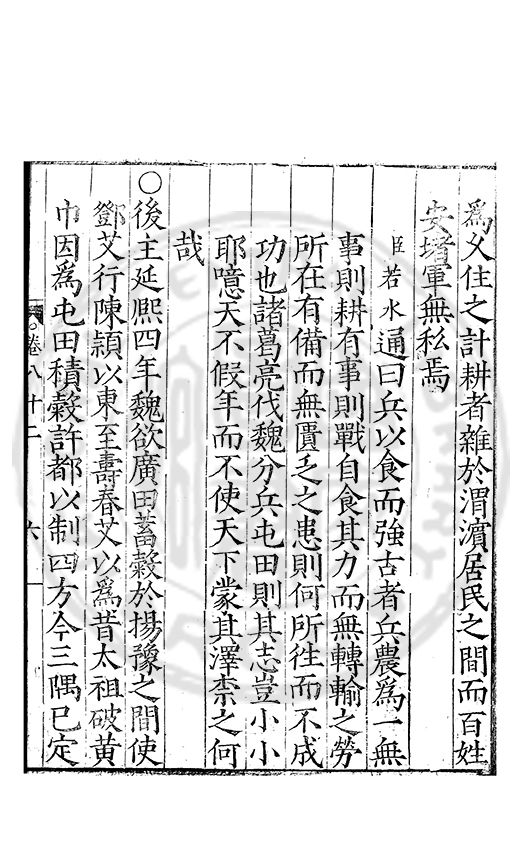 為久住之計耕者雜於渭濱居民之間而百姓
安堵軍無私焉
臣若水通曰兵以食而強古者兵農為一無
事則耕有事則戰自食其力而無轉輸之勞
所在有備而無匱乏之患則何所往而不成
功也諸葛亮伐魏分兵屯田則其志豈小小
耶噫天不假年而不使天下蒙其澤柰之何
哉
○後主延熙四年魏欲廣田蓄穀於揚豫之間使
鄧艾行陳頴以東至壽春艾以為昔太祖破黃
巾因為屯田積穀許都以制四方今三隅已定
卷八十二 六